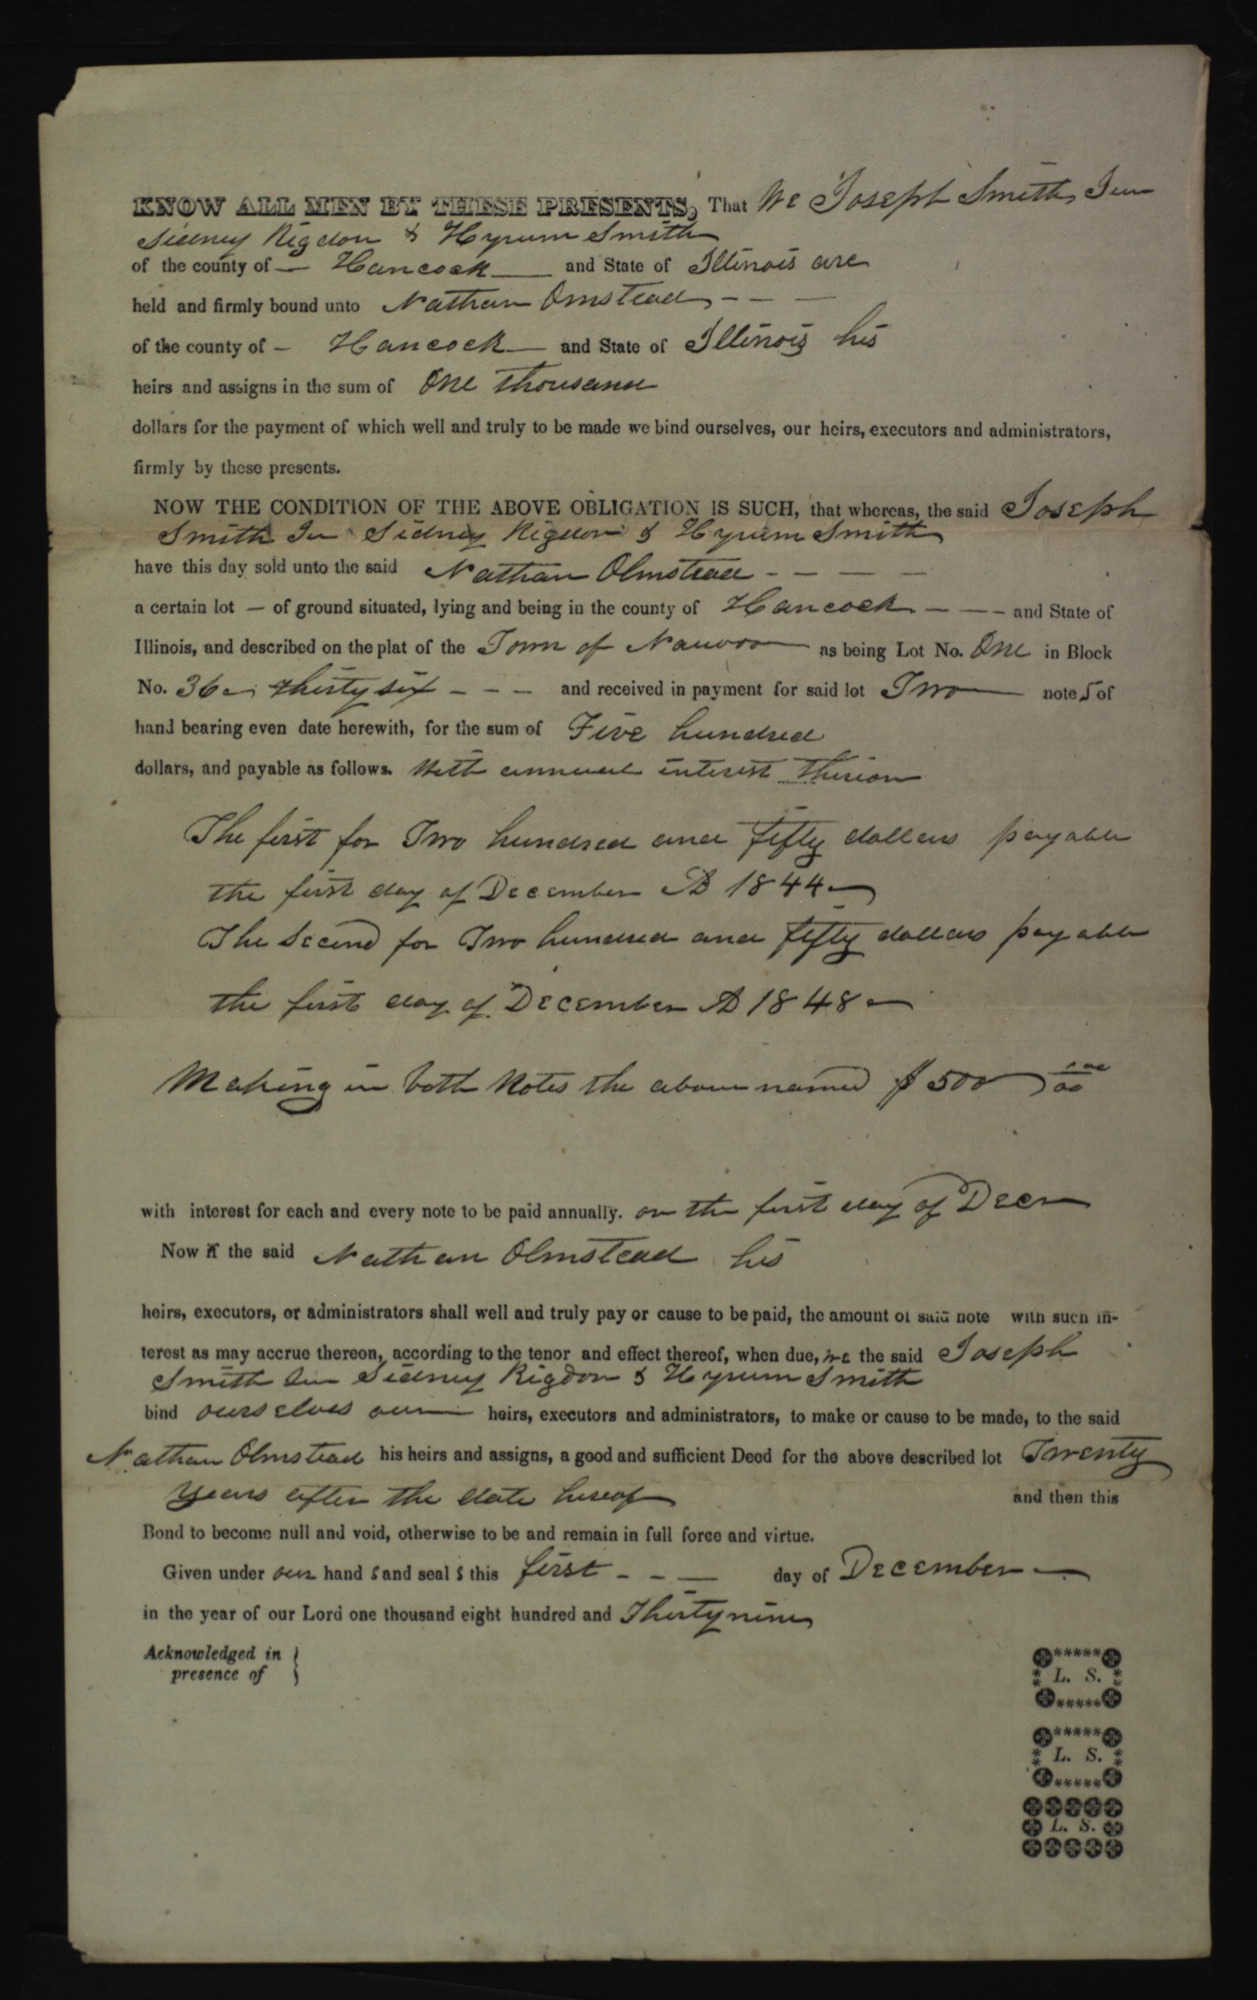 KNOW ALL MEN BY THESE PRESENTS, That We Joseph Smith, Jun
Sidney Rigdon & Hyrum Smith
of the county of — Hancock — and State of Illinois are
held and firmly bound unto Nathan Omstead - - -
of the county of — Hancock — and State of Illinois his
heirs and assigns in the sum of One thousand
dollars for the payment of which well and truly to be made we bind ourselves, our heirs, executors and administrators,
firmly by these presents.
NOW THE CONDITION OF THE ABOVE OBLIGATION IS SUCH, that whereas, the said Joseph
Smith Jun Sidney Rigdon & Hyrum Smith
have this day sold unto the said Nathan Olmstead - - - -
a certain lot — of ground situated, lying and being in the county of Hancock - - - and State of
Illinois, and described on the plat of the Town of Nauvoo — as being Lot No. One in Block
No. 36 thirty six - - - and received in payment for said lot Two — note s of
hand bearing even date herewith, for the sum of Five hundred
dollars, and payable as follows. With annual interest thereon
The first for Two hundred and fifty dollars payable
the first day of December AD 1844 —
The Second for Two hundred and fifty dollars payable
the first day of December AD 1848 —
Making in both Notes the above named $ 500
with interest for each and every note to be paid annually. on the first day of Decr
Now if the said Nathan Olmstead his
heirs, executors, or administrators shall well and truly pay or cause to be paid, the amount of said note with such in-
terest as may accrue thereon, according to the tenor and effect thereof, when due, we the said Joseph
Smith Jun Sidney Rigdon & Hyrum Smith
bind ourselves our — heirs, executors and administrators, to make or cause to be made, to the said
Nathan Olmstead his heirs and assigns, a good and sufficient Deed for the above described lot Twenty
Years after the date hereof and then this
Bond to become null and void, otherwise to be and remain in full force and virtue.
Given under our hand s and seal s this first - - — day of December —
in the year of our Lord one thousand eight hundred and Thirty nine
Acknowledged in }
presence of }
L. S.
L. S.
L. S.